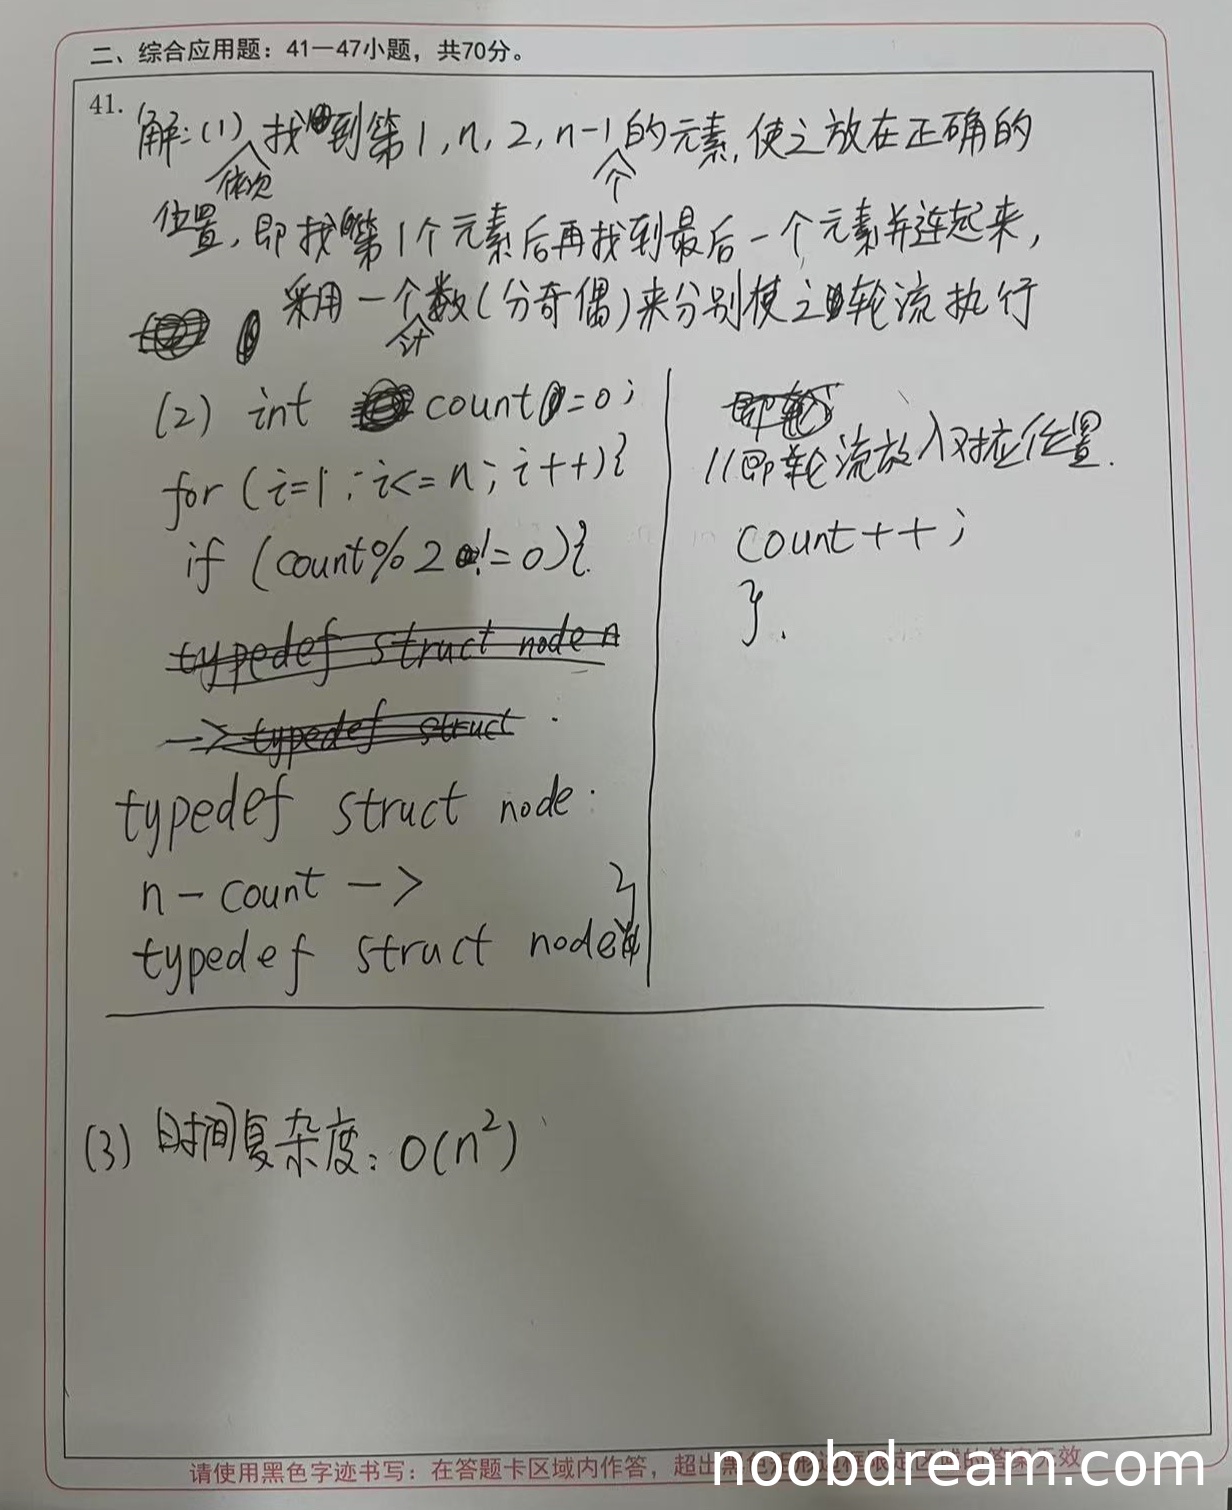 二、综合应用题：41—47小题，共70分。
41. 解:(1) 依次找到第1,n,2,n-1个的元素,使之放在正确的
位置,即找第1个元素后再找到最后一个元素并连起来,
采用一个计数(分奇偶)来分别使之轮流执行
(2) int count=0;
for (i=1;i<=n;i++){
if (count%2 != 0){
typedef struct node n
-> typedef struct
typedef struct node
n-count ->
typedef struct node }
//即轮流放入对应位置.
count++;
}.
(3) 时间复杂度: O(n²)
请使用黑色字迹书写：在答题卡区域内作答，超出
noobdream.com